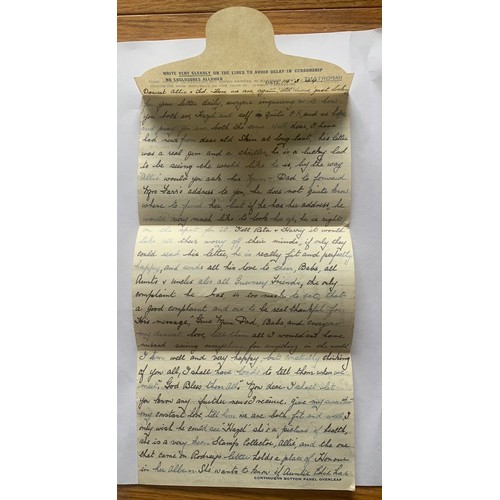 WRITE VERY CLEARLY ON THE LINES TO AVOID DELAY IN CENSORSHIP
NO ENCLOSURES ALLOWED
Dearest Allie & Ted. Here we are again, still just looking
for your letter daily, everyone enquiring as to how
you both are, Hazel and self quite O.K. and we hope
and pray you are both the same. Well dear, I have
had news from dear old Stan at long last, his letter
was a real gem and a thriller, he is a lucky lad
to be seeing the world like he is, by the way
Allie would you ask his Mum & Dad to forward
address to you, he does not quite know
where to find her, but if he has her address, he
would very much like to look her up, he is right
on the spot for it. Tell Reta & Harry it would
take all their worry off their minds, if only they
could read his letter, he is really fit and perfectly
happy, and sends all his love to them, Babs, all
Aunts & Uncles also all Guernsey Friends, the only
complaint he has is too much to eat, that's
a good complaint and one to be real thankful for.
His message, "Give Mum, Dad, Babs and everyone
my dearest love, tell them all I would not have
missed seeing everything for anything in the world
I am well and very happy but constantly thinking
of you all, I shall have loads to tell them when we
meet, God Bless them all." You dear I shall let
you know any further news I receive. Give my
my constant love, tell him we are both fit and well, I
only wish he could see "Hazel" she's a picture of health,
she is a very keen Stamp Collector, Allie, and the one
that came on Rodneys letter holds a place of Honour
in her Album. She wants to know if Auntie Edie has
CONTINUE ON BOTTOM PANEL OVERLEAF